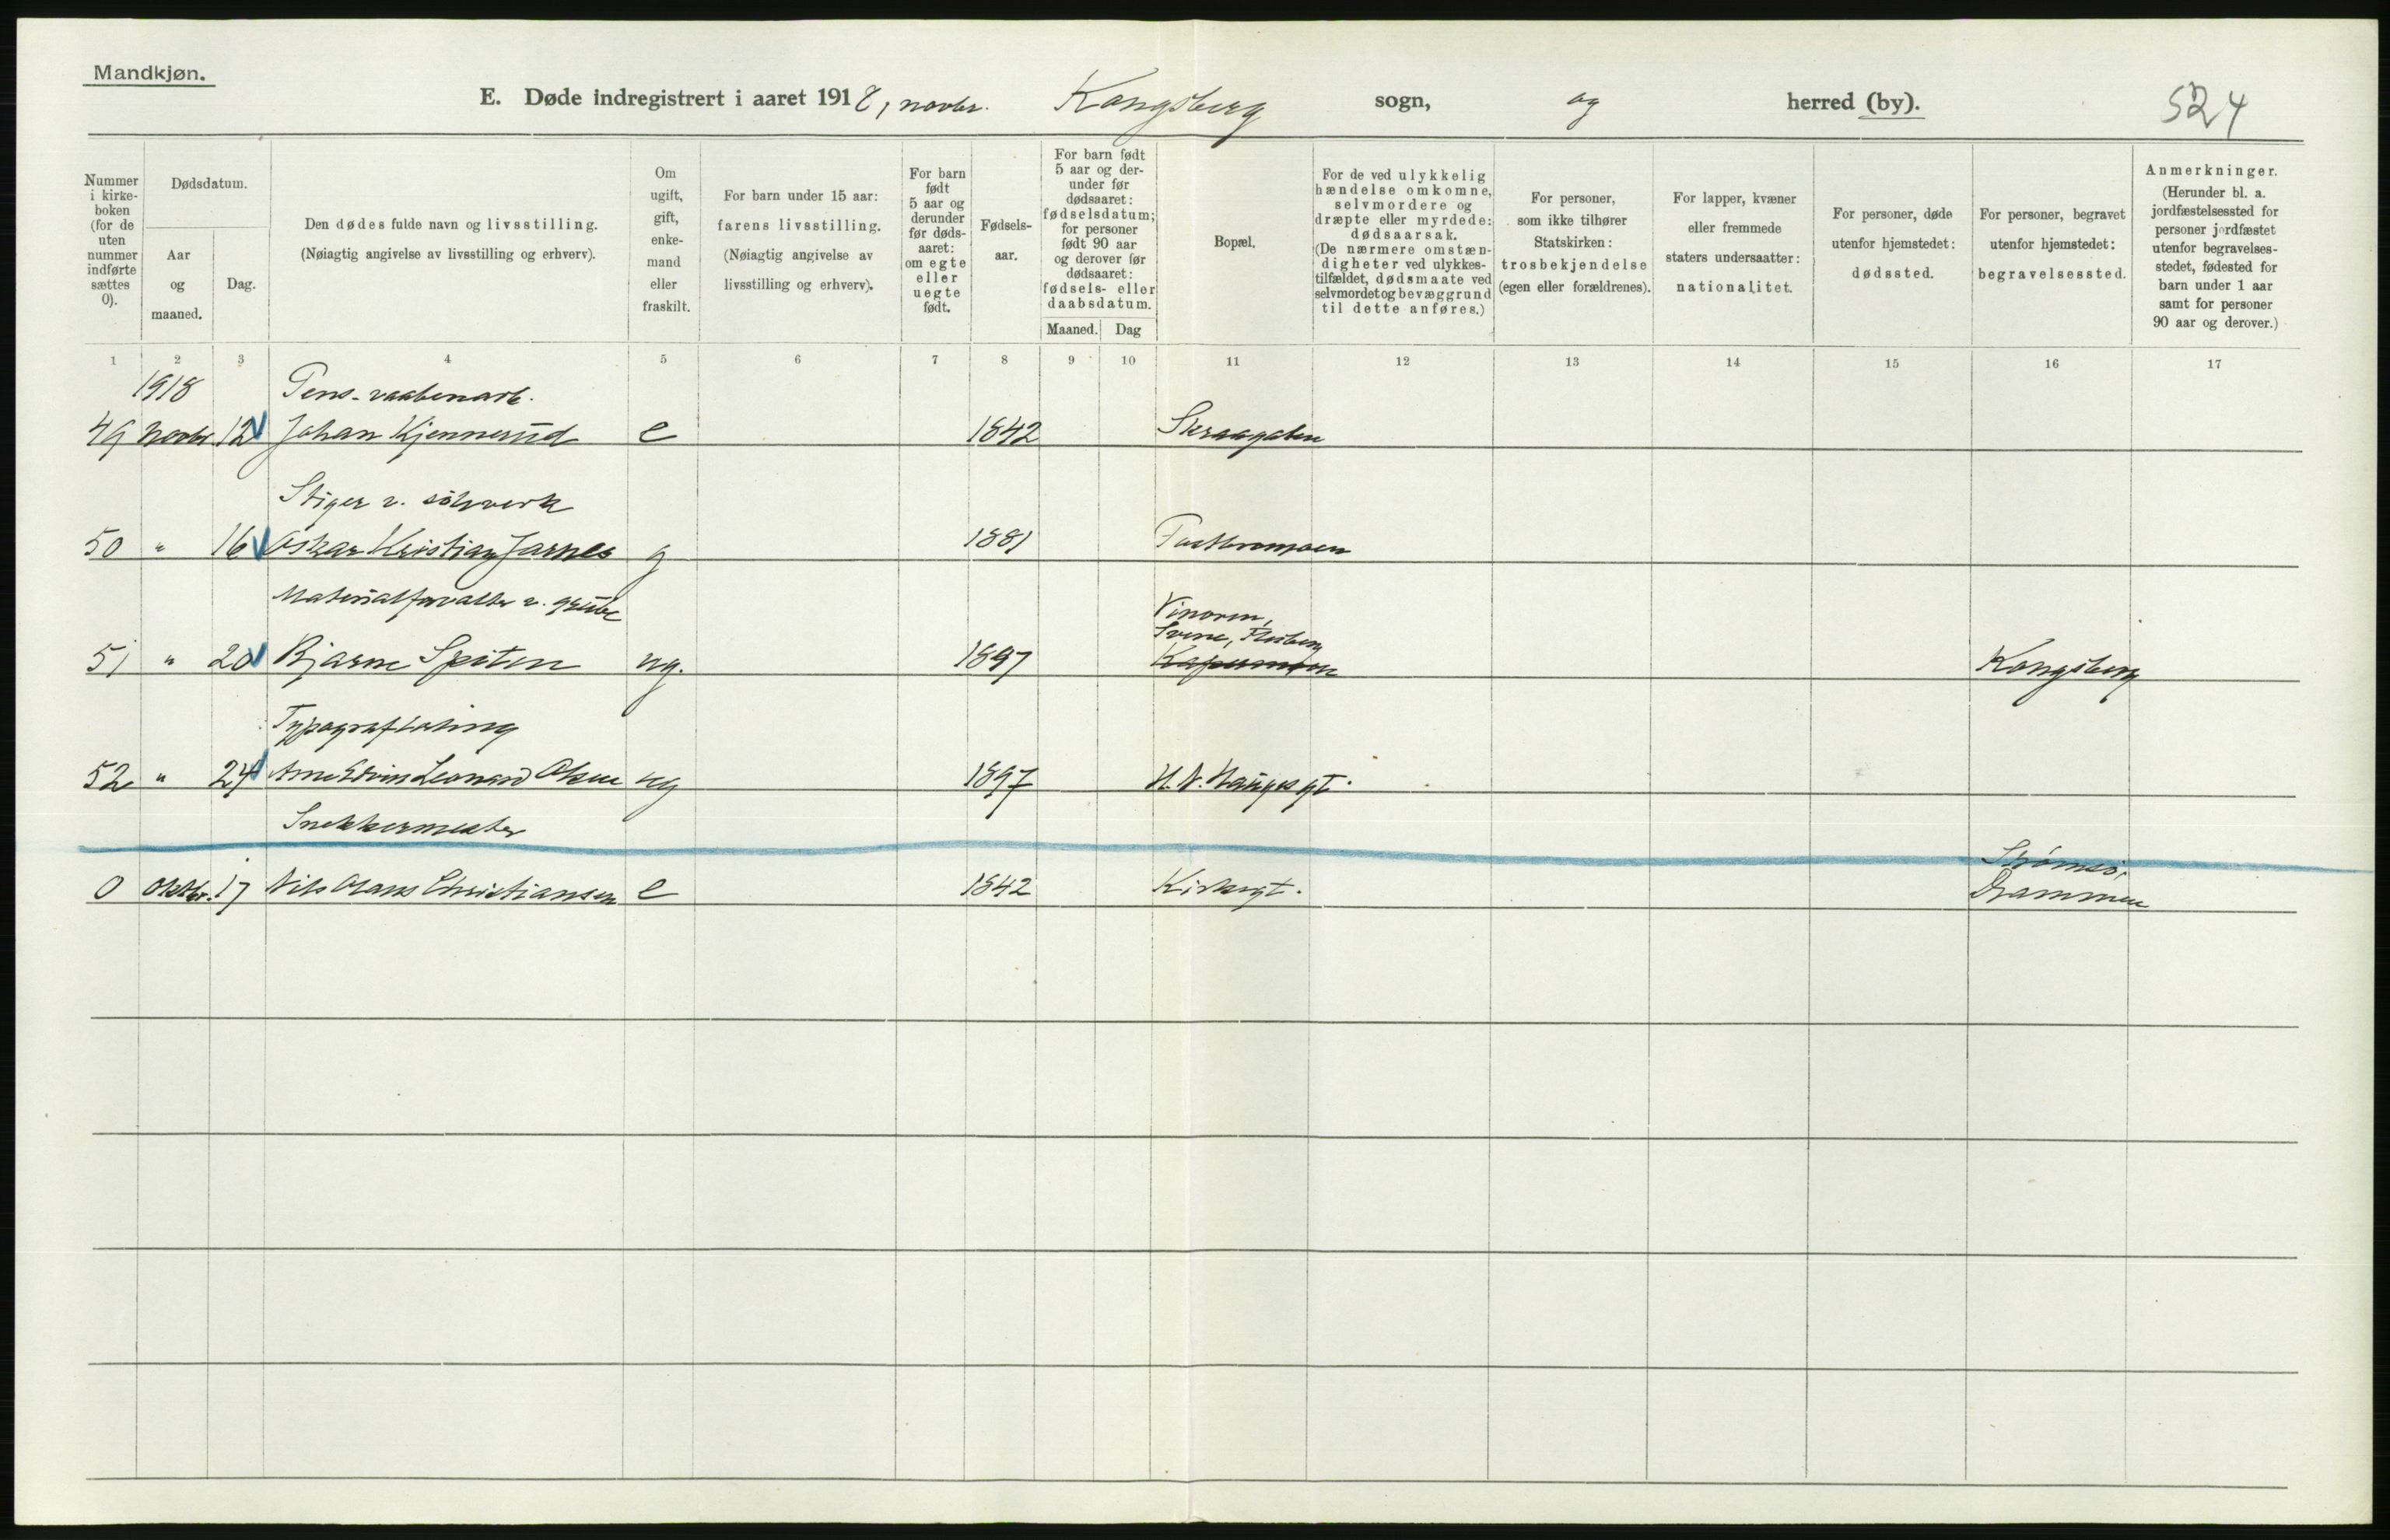 Mandkjøn.
E. Døde indregistrert i aaret 1918, novbr. Kongsberg sogn, og herred (by). 524
Nummer i kirke-boken (for de uten nummer indførte sættes 0).
Dødsdatum.
Aar og maaned.
Dag.
Den dødes fulde navn og livsstilling.
(Nøiagtig angivelse av livsstilling og erhverv).
Om ugift, gift, enke-mand eller fraskilt.
For barn under 15 aar:
farens livsstilling.
(Nøiagtig angivelse av livsstilling og erhverv).
For barn født 5 aar og derunder før døds-aaret: om egte eller uegte født.
Fødsels-aar.
For barn født 5 aar og der-under før dødsaaret: fødselsdatum; for personer født 90 aar og derover før dødsaaret: fødsels- eller daabsdatum.
Maaned. Dag
Bopæl.
For de ved ulykkelig hændelse omkomne, selvmordere og dræpte eller myrdede: dødsaarsak.
(De nærmere omstæn-digheter ved ulykkes-tilfældet, dødsmaate ved selvmordet og bevæggrund til dette anføres.)
For personer, som ikke tilhører Statskirken: trosbekjendelse (egen eller forældrenes).
For lapper, kvæner eller fremmede staters undersaatter: nationalitet.
For personer, døde utenfor hjemstedet: dødssted.
For personer, begravet utenfor hjemstedet: begravelsessted.
Anmerkninger.
(Herunder bl. a. jordfæstelsessted for personer jordfæstet utenfor begravelses-stedet, fødested for barn under 1 aar samt for personer 90 aar og derover.)
1 2 3 4 5 6 7 8 9 10 11 12 13 14 15 16 17
1918 Pens. vaabenarb.
49 Novbr 12 Johan Kjennerud e 1842 Skraagaten
Stiger v. sölvverk
50 " 16 Oskar Kristian Jarnes g 1881
Materialforvalter v. grube Vinoren,
Svene, Flesberg
51 " 20 Bjarne Spiten ug. 1897 Kongsberg
Typograflærling
52 " 24 Arne Edvin Leonard Olsen ug 1897 H. N. Hauges gt.
Snekkermester Strømsö,
0 Oktbr. 17 Nils Olaus Christiansen e 1842 Kirkegt. Drammen